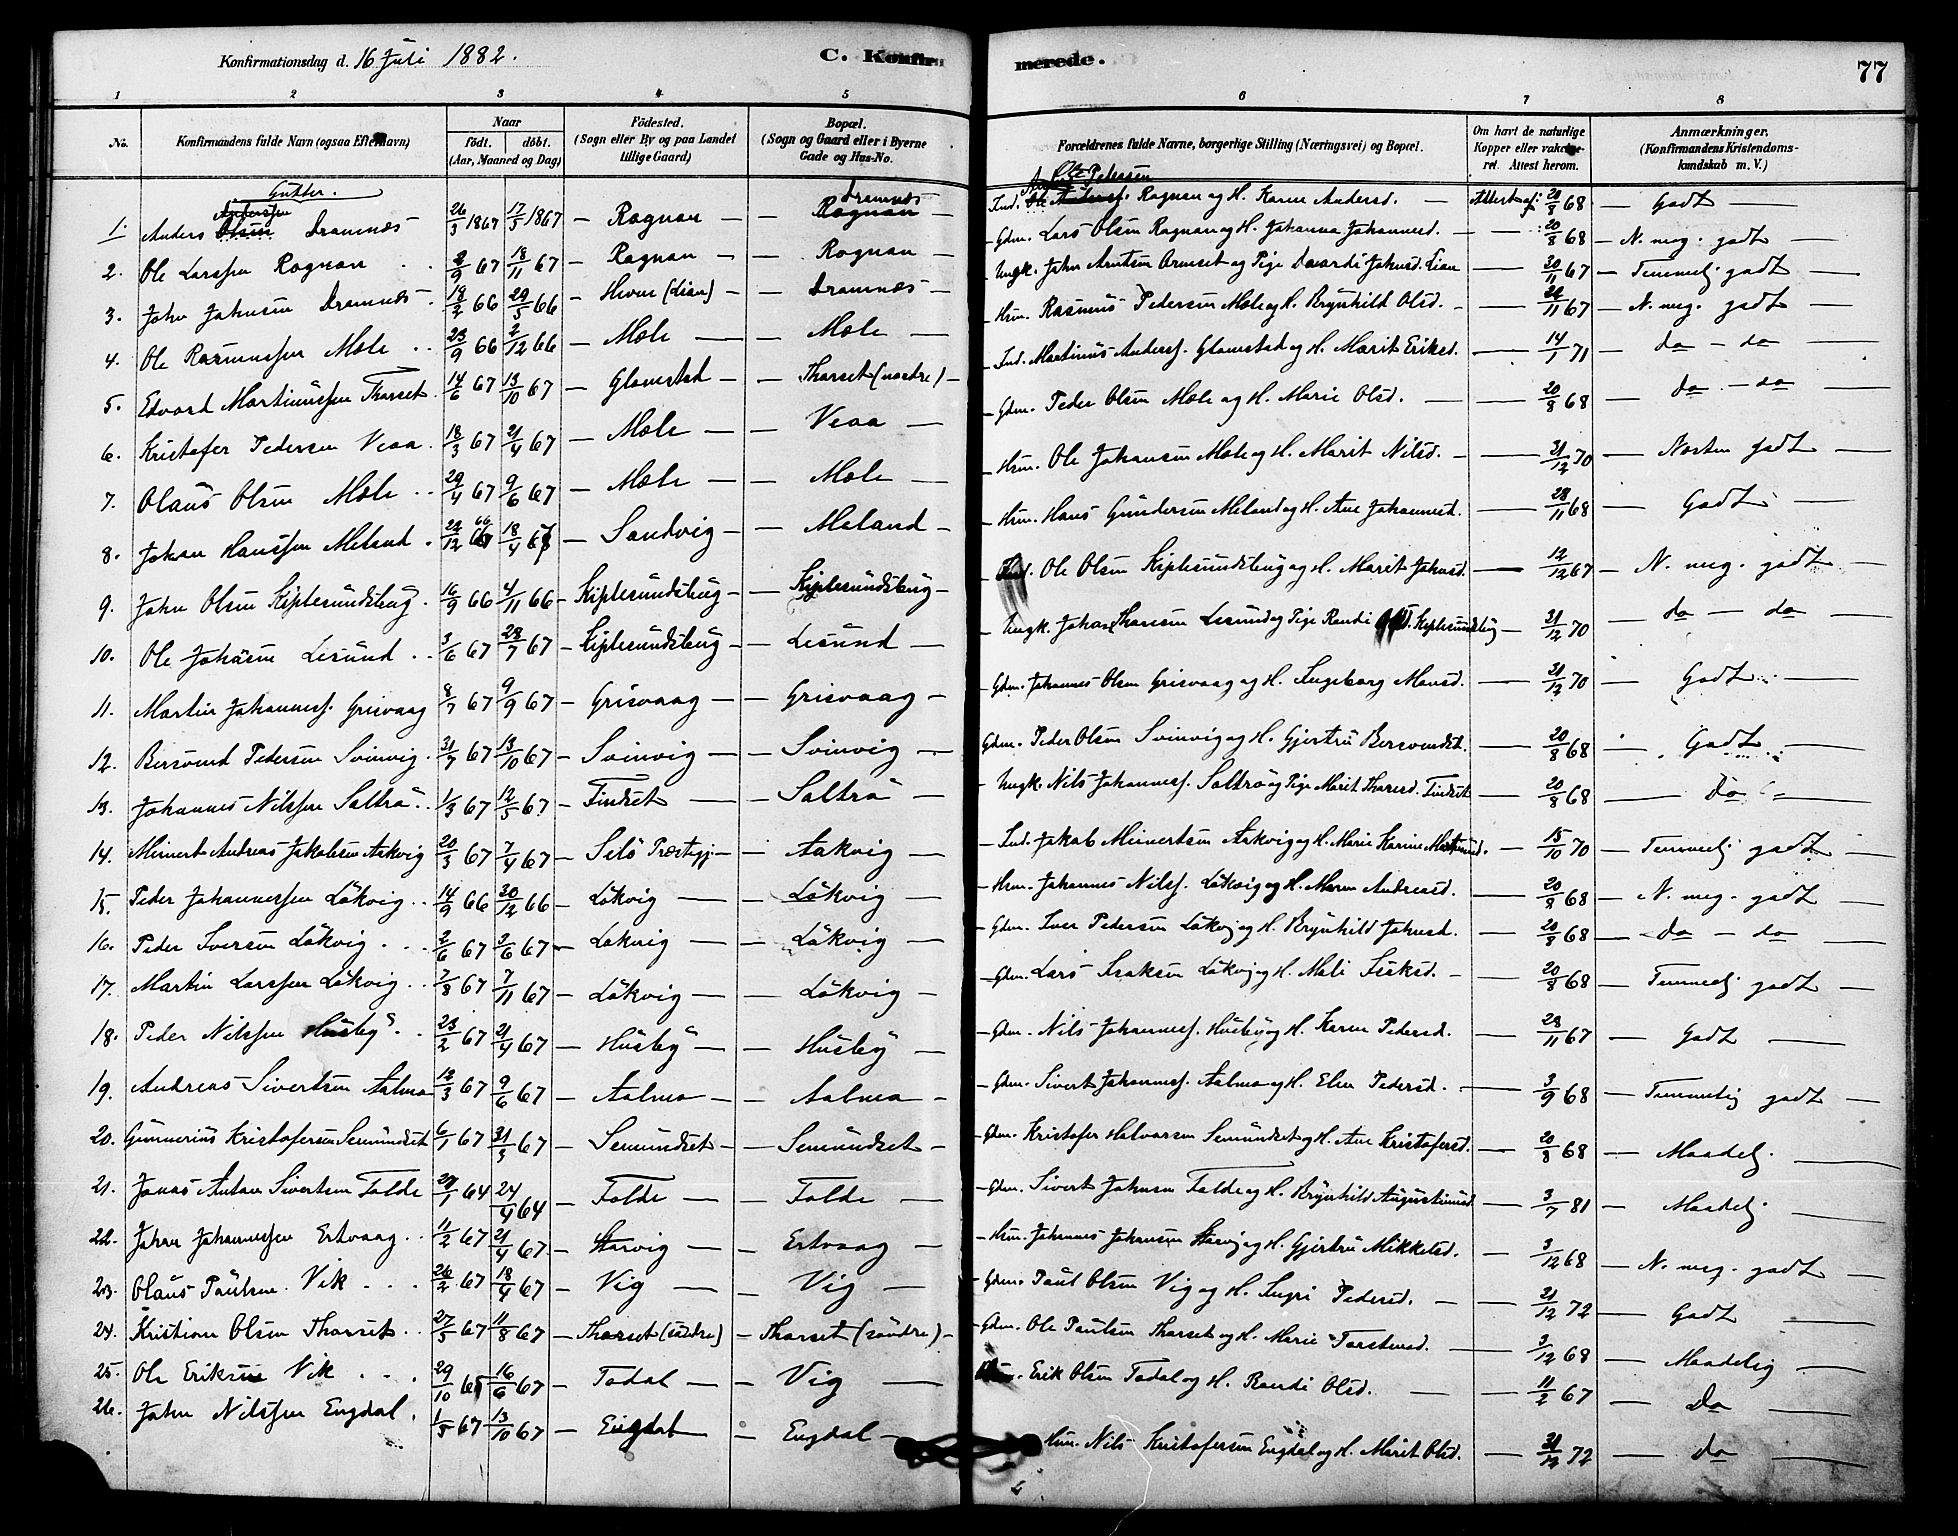 Konfirmationsdag d. 16 Juli 1882.
C. Konfirmerede.
77
1 2 3 4 5 6 7 8
No. Konfirmandens fulde Navn (ogsaa Efternavn) Naar födt. döbt. (Aar, Maaned og Dag) Födested. (Sogn eller By og paa Landet tillige Gaard) Bopæl. (Sogn og Gaard eller i Byerne Gade og Hus-No. Forældrenes fulde Navne, borgerlige Stilling (Næringsvei) og Bopæl. Om havt de naturlige Kopper eller vakcineret. Attest herom. Anmærkninger. (Konfirmandens Kristendomskundskab m. V.)
Gutter.
1. Anders Olsen Anderssen Dromnæs 26/3 1867 17/5 1867 – Rognan – – Rognan Dromnæs – Ind. Rognan og H. Karen Andersd. – Attest af 20/8 68 – Godt
2. Ole Larssen Rognan 2/9 67 18/11 67 – Rognan – – Rognan – Gdm. Lars Olsen Rognan og H. Johanna Johannesd. – 20/8 68 – N. meg. godt
3. John Johnsen Dromnæs 18/2 66 29/5 66 – Hevne (Lian) – – Dromnæs – Ungk. John Arntsen og Pige Johnsd. Lian 30/11 67 – Temmelig godt
4. Ole Rasmussen Mæle 23/9 66 2/12 66 – Mæle – – Mæle – Hsm. Rasmus Pedersen Mæle og H. Brynhild Olsd. – 28/11 67 – N. meg. godt
5. Edvard Martinussen Thorset 14/6 67 13/10 67 – Glomstad – – Thorset (nordre) – Ind. Martinus Anderss. Glomstad og H. Marit Eriksd. – 14/1 71 – do – do
6. Kristofer Pedersen Veaa 18/3 67 21/4 67 – Mæle – – Veaa – Gdm. Peder Olsen Mæle og H. Marie Olsd. – 20/8 68 – do – do
7. Olaus Olsen Mæle 29/4 67 9/6 67 – Mæle – – Mæle – Hsm. Ole Johansen Mæle og H. Marit Nilsd. – 31/12 70 – Næsten godt
8. Johan Hanssen Meland 24/12 66 18/4 67 – Sandvig – – Meland – Hsm. Hans Gundersen Meland og H. Ane Johannesd. – 28/11 68 – Godt
9. John Olsen Kiplesundsbug 16/9 66 4/11 66 – Kiplesundsbug – – Kiplesundsbug – Ind. Ole Olsen Kiplesundsbug og H. Marit Johnsd. – 12/12 67 – N. meg. godt
10. Ole Johansen Lesund 3/6 67 28/7 67 – Kiplesundsbug – – Lesund – Ungk. Johan Thoresen Lesund og Pige Randi Kiplesundsbug – 31/12 70 – do – do
11. Martin Johanness. Grisvaag 8/7 67 9/9 67 – Grisvaag – – Grisvaag – Gdm. Johannes Olsen Grisvaag og H. Ingeborg Monsd. – 31/12 70 – Godt
12. Bersvend Pedersen Svinvig 31/7 67 13/10 67 – Svinvig – – Svinvig – Gdm. Peder Olsen Svinvig og H. Gjertru Bersvendsd. – 20/8 68 – Godt
13. Johannes Nilssen Saltrö 1/3 67 12/5 67 – Findset – – Saltrö – Ungk. Nils Johanness. Saltrö og Pige Marit Thoresd. Findset 20/8 68 – Do
14. Meinert Andreas Jakobsen Aakvig 20/3 67 7/4 67 – Selö Præstegj. – Aakvig – Ind. Jakob Meinertsen Aakvig og H. Marie Karine – 15/10 70 – Temmelig godt
15. Peder Johannessen Lökvig 14/9 66 30/12 66 – Lökvig – – Lökvig – Hsm. Johannes Nilss. Lökvig og H. Maren Andreasd. – 20/8 68 – N. meg. godt
16. Peder Iversen Lökvig 2/6 67 3/6 67 – Lökvig – – Lökvig – Gdm. Iver Pedersen Lökvig og H. Brynhild Johnsd. – 20/8 68 – do – do
17. Martin Larssen Lökvig 7/8 67 7/11 67 – Lökvig – – Lökvig – Gdm. Lars Isaksen Lökvig og H. Mali Isaksd. – 20/8 68 – Temmelig godt
18. Peder Nilssen Husby 23/2 67 21/4 67 – Husby – – Husby – Gdm. Nils Johanness. Husby og H. Karen Pedersd. – 28/11 67 – Godt
19. Andreas Sivertsen Aalmo 12/3 67 9/6 67 – Aalmo – – Aalmo – Gdm. Sivert Johanness. Aalmo og H. Elen Pedersd. – 3/9 68 – Temmelig godt
20. Gunnerius Kristofersen Semundset 6/1 67 31/3 67 – Semundset – – Semundset – Gdm. Kristofer Halvorsen Semundset og H. Ane Kristofersd. – 20/8 68 – Maadelig
21. Jonas Anton Sivertsen Folde 27/1 64 24/4 64 – Folde – – Folde – Gdm. Sivert Johnsen Folde og H. Brynhild Augustinusd. – 3/7 81 – Maadelig
22. Johan Johannessen Ertvaag 11/2 67 21/4 67 – Storvig – – Ertvaag – Hsm. Johannes Johansen Storvig og H. Gjertru Mikkelsd. – 3/12 68 – N. meg. godt
23. Olaus Paulsen Vik 26/2 67 18/4 67 – Vig – – Vig – Gdm. Paul Olsen Vig og H. Ingri Pedersd. – 31/12 72 – Godt
24. Kristian Olsen Thorset 27/5 67 11/8 67 – Thorset (söndre) – Thorset (söndre) – Gdm. Ole Paulsen Thorset og H. Marie Torstensd. – 3/12 68 – Maadelig
25. Ole Eriksen Vik 29/10 16/6 67 – Todal – – Vig – Erik Olsen Todal og H. Randi Olsd. – 11/2 67 – Do
26. John Nilssen Engdal 1/5 67 13/10 67 – Engdal – Engdal – Hsm. Nils Kristofersen Engdal og H. Marit Olsd. – 31/12 72 – do